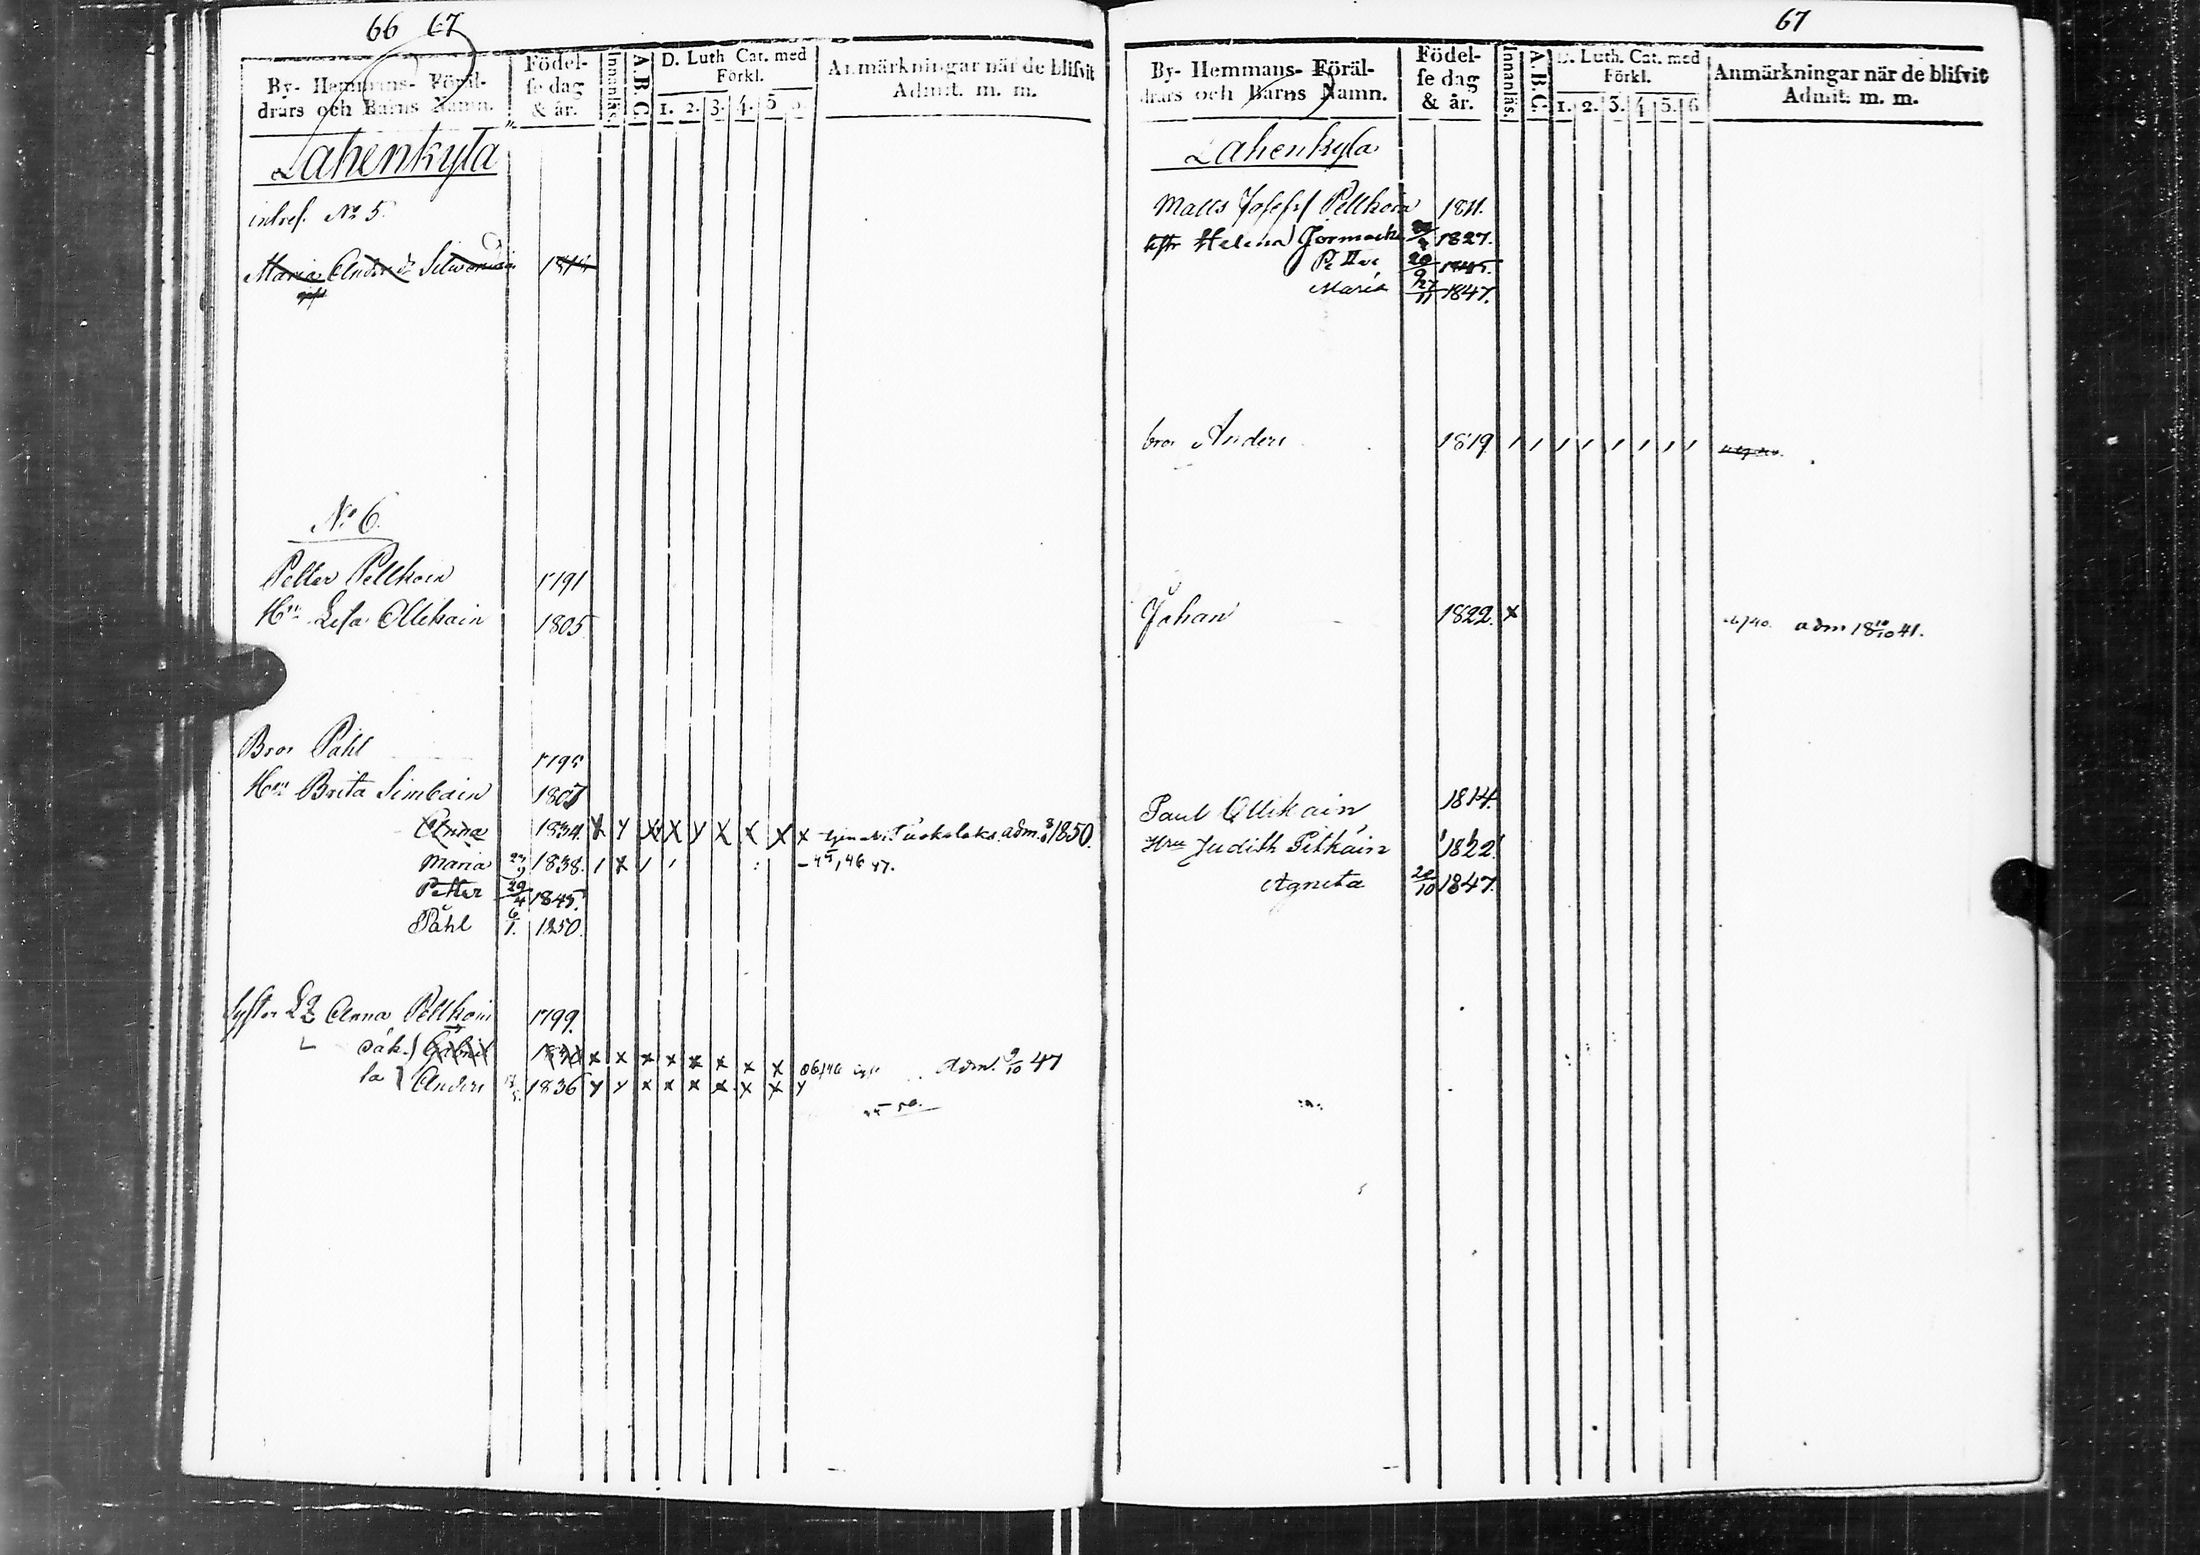 66 67
By- Hemmans- Föräl-
drars och Barns Namn.
Födel-
se dag
& år.
Innanläs.
A.B.C.
D. Luth Cat. med
Förkl.
1. 2. 3. 4. 5
Anmärkningar när de blifvit
Admit. m. m.
Lahenkyla
inhes. No 5.
Maria Anders dr
No 6.
Petter Pellkoin 1791
Hu Lisa Ollikain 1805
Bror Påhl
Hu Brita Simbain 1807
Anna 1834. X Y X X Y X X X X adm. 1850.
Maria 1838.
Petter 29/4 1845.
Påhl 6/1. 1850.
Syster Anna Pellkoin 1799.
Gabriel x x x x x x x x adm. 9/10 47
Anders 1836 Y Y x x x x x x Y
67
By- Hemmans- Föräl-
drars och Barns Namn.
Födel-
se dag
& år.
Innanläs.
A.B.C.
D. Luth. Cat. med
Förkl.
1. 2. 3. 4 5. 6
Anmärkningar när de blifvit
Admit. m. m.
Lahenkyla
Matts Josefs Pellkoin 1811.
Helena Jormack 1827.
Petter 20/9 1845.
Maria 27/11 1847.
bror Anders 1819
Johan 1822. x adm 18 10/10 41.
Paul Ollikain 1814.
Hru Judith Pitkäin 1822.
Agneta 1847.